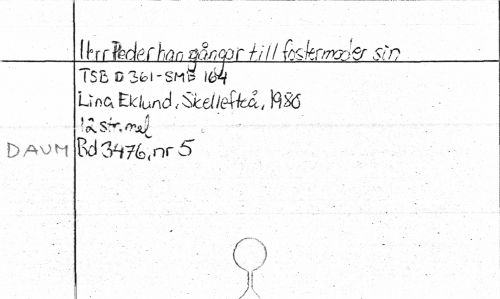 Herr Peder han gångar till fostermoder sin
TSB D 361 - SMB 164
Lina Eklund, Skellefteå, 1980
12 str. mel
DAUM Bd 3476, nr 5